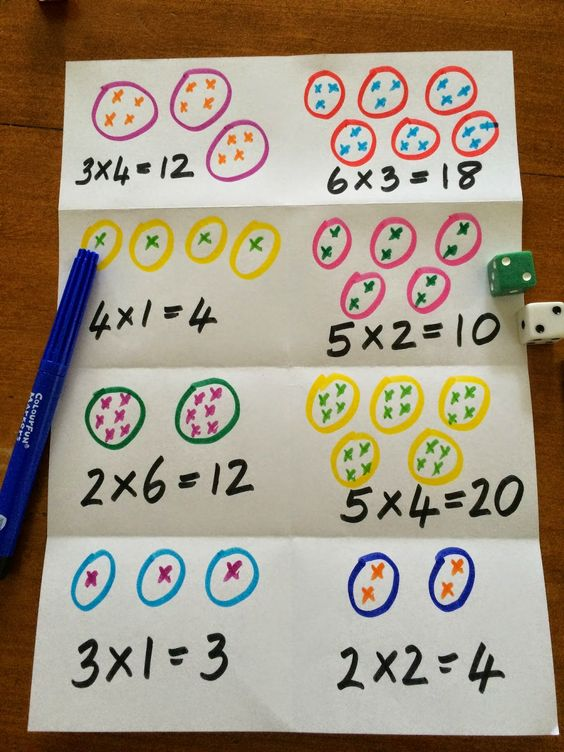 3×4=12
6×3=18
4×1=4
5×2=10
2×6=12
5×4=20
3×1=3
2×2=4
COLOURFUN
MARKERS